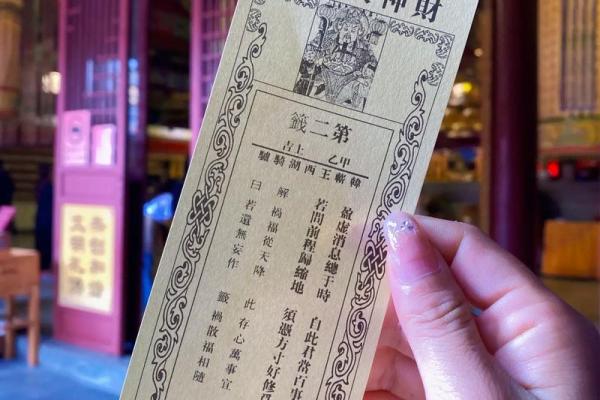 財神
第二籤
甲乙
上吉
韓蘄王西湖騎驢
盈虛消息總于時 自此君當百事
若問前程歸縮地 須憑方寸好修
解 禍福從天降 此 存心萬事宜
曰 若還無妄作 籤 禍散福相隨